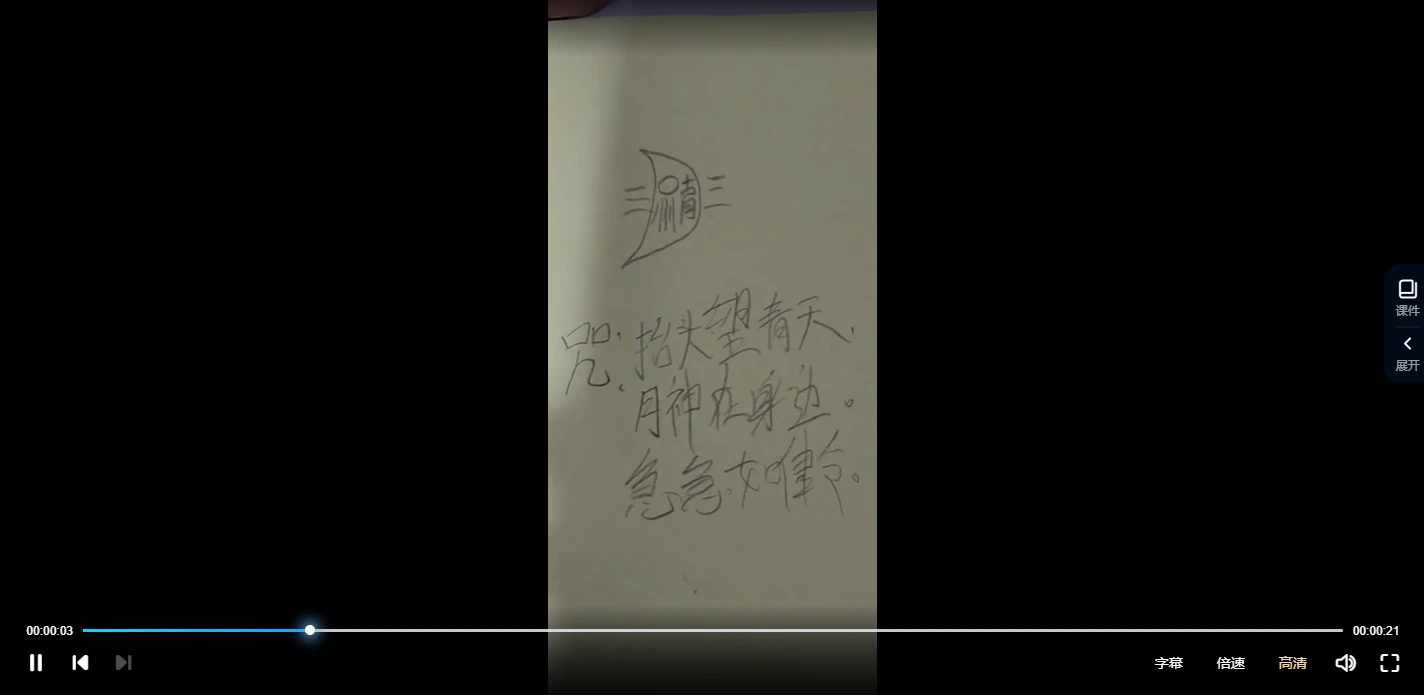 咒:抬头望青天.
月神在身边。
急急如律令。
课件
展开
00:00:03
00:00:21
字幕
倍速
高清